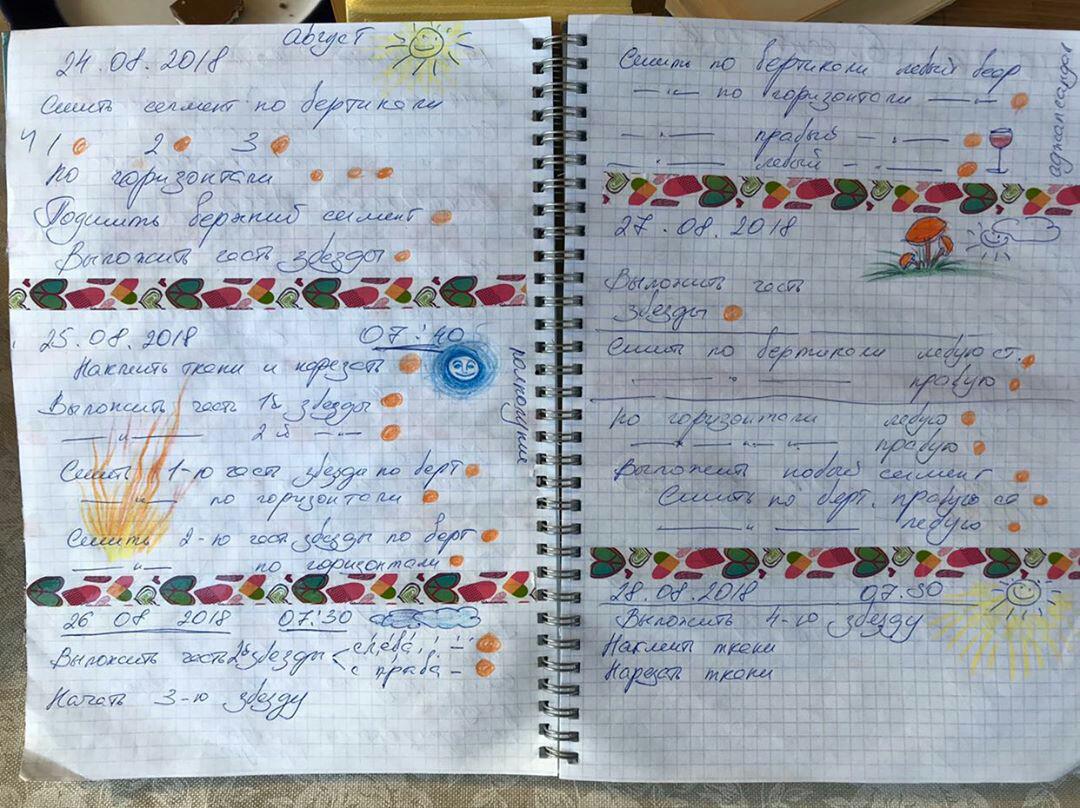 Август
24.08.2018
Сшить сегмент по вертикали
1 2 3
по горизонтали
Подшить верхний сегмент
Выложить часть звезды
25.08.2018 07:40
Наклеить ткани и нарезать
полнолуние
Выложить часть 1й звезды
— " — 2й — " —
Сшить 1-ю часть звезды по верт
— " — по горизонтали
Сшить 2-ю часть звезды по верт
— " — по горизонтали
26 08 2018 07:30
Выложить часть 2й звезды < слева, -
с права -
Начать 3-ю звезду
Сшить по вертикали левый
— " — по горизонтали — " —
— " — правый — " —
— " — левый — " —
аджапсандал
27.08.2018
Выложить часть
звезды
Сшить по вертикали левую ст.
— " — правую
по горизонтали левую
— " — — " — правую
Выложить новый сегмент
Сшить по верт. правую ст
— " — левую
28.08.2018 07:30
Выложить 4-ю звезду
Наклеить ткани
Нарезать ткани